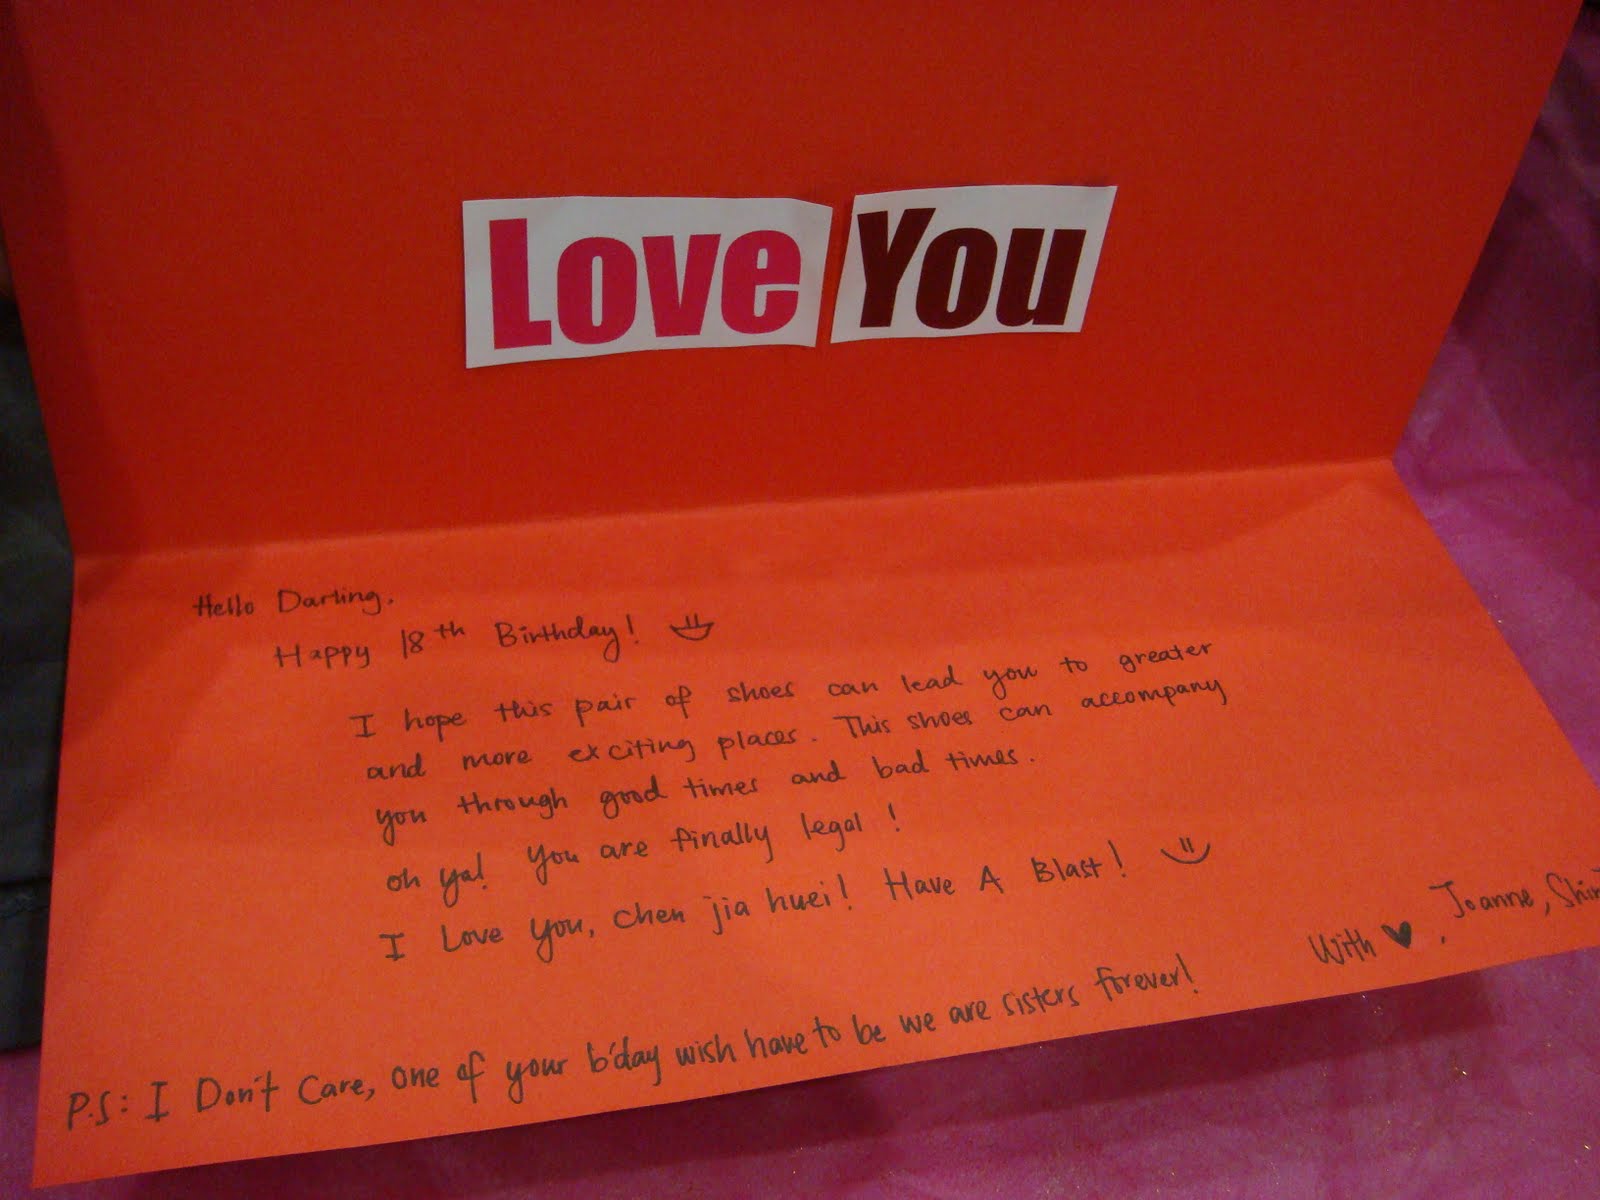 Love You
Hello Darling,
Happy 18th Birthday!
I hope this pair of shoes can lead you to greater
and more exciting places. This shoes can accompany
you through good times and bad times.
oh ya! You are finally legal!
I Love You, Chen jia huei! Have A Blast!
With ♥, Joanne,
P.S: I Don't Care, One of your b'day wish have to be we are sisters forever!